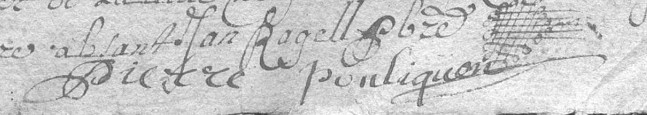 absant Jan Rogell Pbre
Pierre Pouliquen